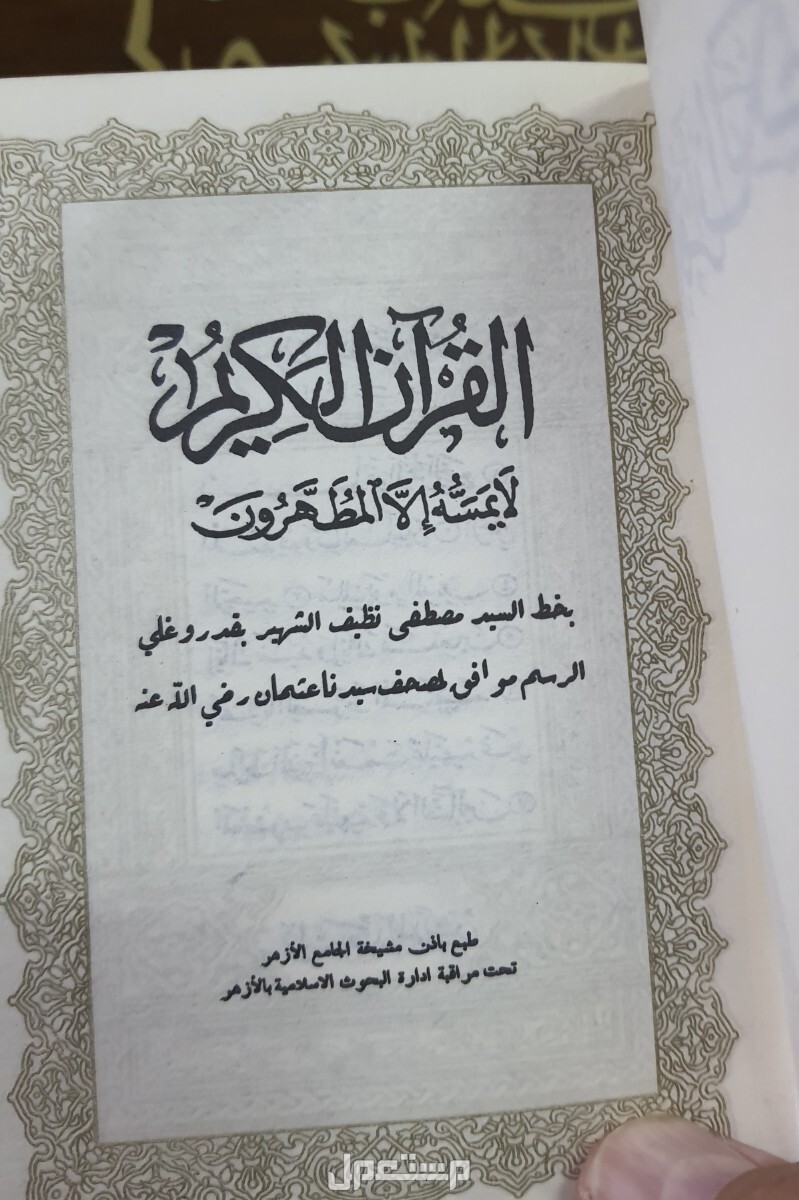 القُرآن الكَرِيمُ
لَا يَمَسُّهُ إِلَّا ٱلْمُطَهَّرُونَ
بخط السيد مصطفى نظيف الشهير بقدروغلي
الرسم موافق لمصحف سيدنا عثمان رضي الله عنه
طبع باذن مشيخة الجامع الأزهر
تحت مراقبة ادارة البحوث الاسلامية بالأزهر
مستعمل